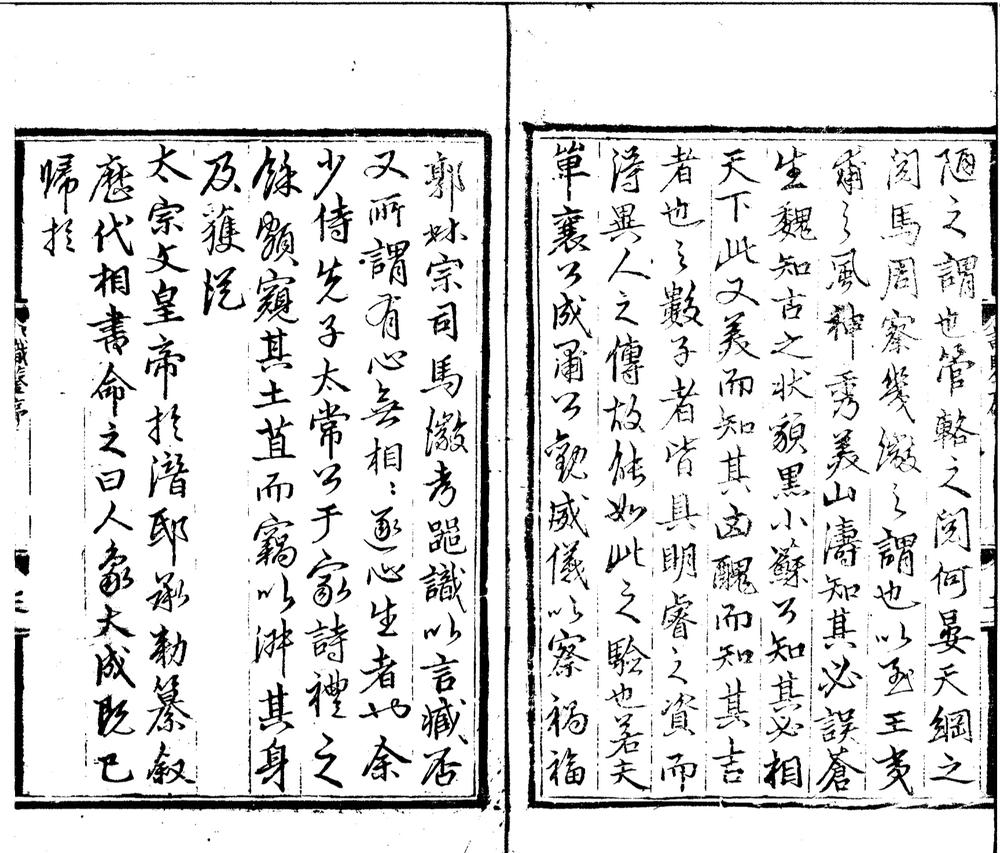 陋之謂也管輅之閱何晏天綱之
閱馬周察幾微之謂也以至王夷
甫之風神秀美山濤知其必誤蒼
生魏知古之狀貌黑小蘇公知其必相
天下此又美而知其凶醜而知其吉
者也之數子者皆具明睿之資而
得異人之傳故能如此之驗也若夫
單襄公成肅公觀威儀以察禍福
郭林宗司馬徽考器識以言臧否
又所謂有心無相相逐心生者也余
少侍先子太常公于家詩禮之
餘願窺其土苴而竊以淑其身
及獲從
太宗文皇帝於潛邸承勅纂敘
歷代相書命之曰人象大成既已
歸於